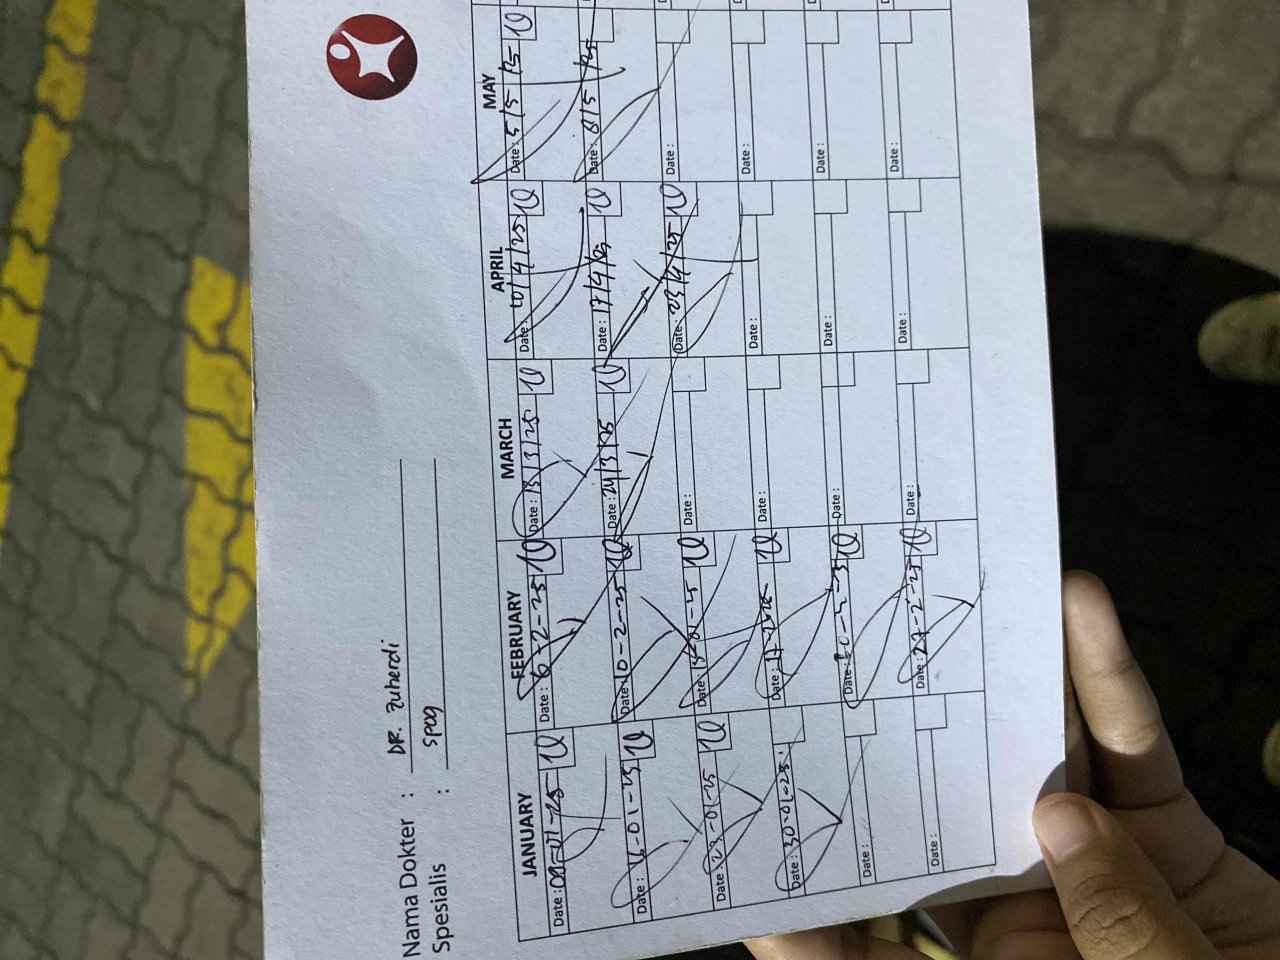 Nama Dokter : DR. Zuherdi
Spesialis : Spog
JANUARY FEBRUARY MARCH APRIL MAY
Date: 09-01-25 Date: 6-2-25 Date: 13/3/25 Date: 10/4/25 Date: 5/5/25
Date: 16-01-25 Date: 10-2-25 Date: 24/3/25 Date: 17/4/25 Date: 8/5/25
Date: -01-25 Date: -01-25 Date: Date: 23/4/25 Date:
Date: 30-01-25. Date: 17- Date: Date: Date:
Date: Date: Date: Date: Date:
Date: Date: 27-2-25 Date: Date: Date: